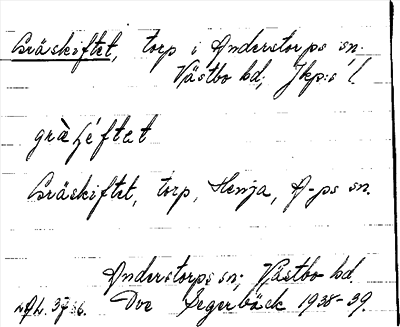 Gräskiftet, torp i Anderstorps sn.
Västbo hd; Jkp:s l
Gräskiftet, torp, Henja, A-ps sn.
Anderstorps sn; Västbo hd.
Ove Segerbäck 1938-39.